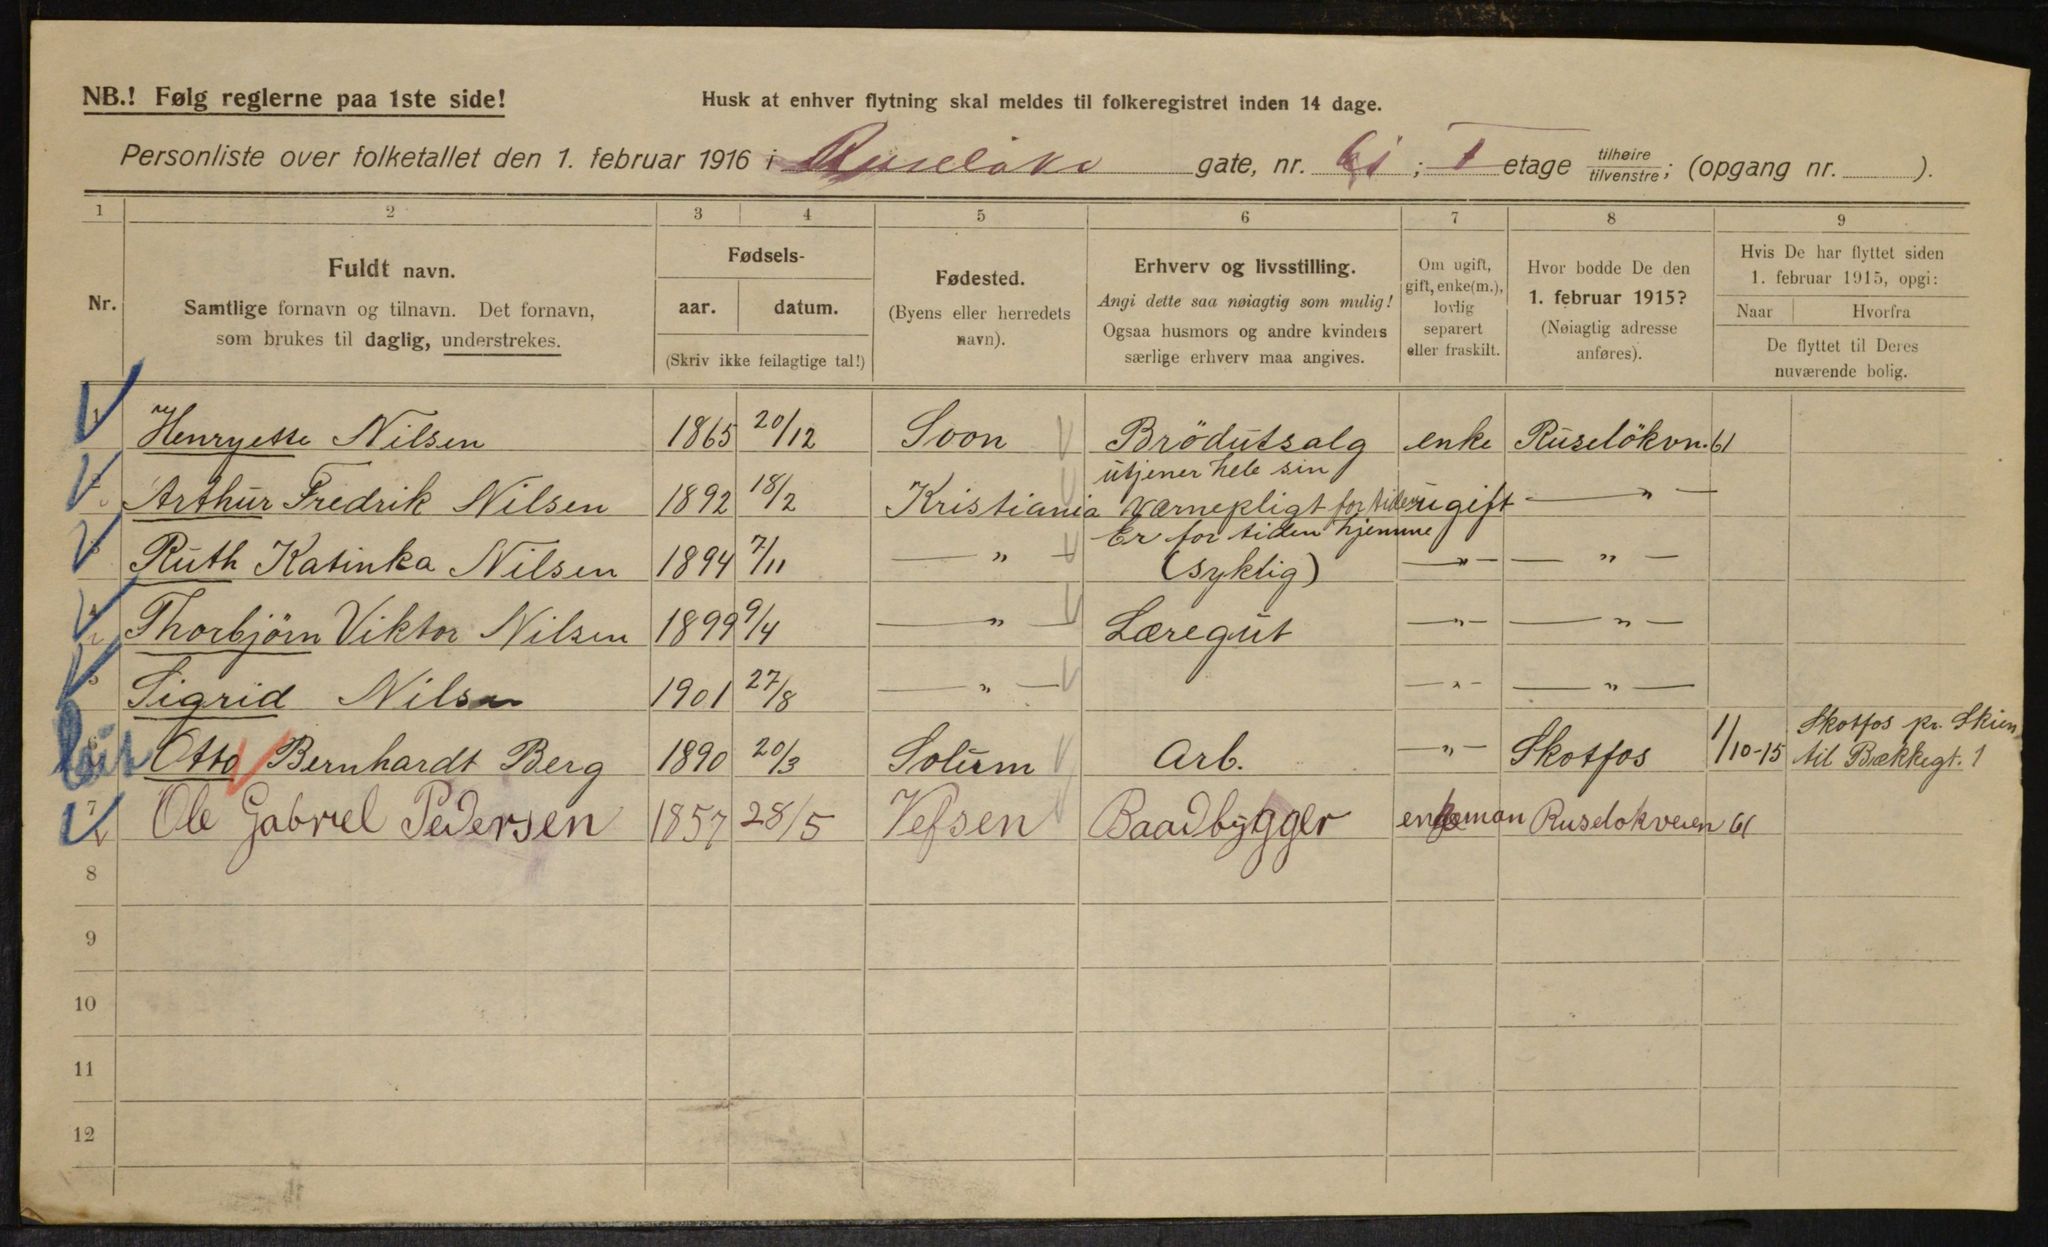 NB.! Følg reglerne paa 1ste side!
Husk at enhver flytning skal meldes til folkeregistret inden 14 dage.
Personliste over folketallet den 1. februar 1916 i Ruseløkv gate, nr. 61; I etage tilhøire/tilvenstre; (opgang nr. ).
1 2 3 4 5 6 7 8 9
Nr.
Fuldt navn.
Samtlige fornavn og tilnavn. Det fornavn,
som brukes til daglig, understrekes.
Fødsels-
aar. datum.
(Skriv ikke feilagtige tal!)
Fødested.
(Byens eller herredets
navn).
Erhverv og livsstilling.
Angi dette saa nøiagtig som mulig!
Ogsaa husmors og andre kvinders
særlige erhverv maa angives.
Om ugift,
gift, enke(m.),
lovlig
separert
eller fraskilt.
Hvor bodde De den
1. februar 1915?
(Nøiagtig adresse
anføres).
Hvis De har flyttet siden
1. februar 1915, opgi:
Naar Hvorfra
De flyttet til Deres
nuværende bolig.
1 Henryette Nilsen 1865 20/12 Soon Brödutsalg enke Ruselökvn. 61
2 Arthur Fredrik Nilsen 1892 18/2 Kristiania utjener hele sin
Værnepligt for tiden ugift — " —
3 Ruth Katinka Nilsen 1894 7/11 — " — Er for tiden hjemme
(syklig) — " — — " —
4 Thorbjörn Viktor Nilsen 1899 9/4 — " — Læregut — " — — " —
5 Sigrid Nilsen 1901 27/8 — " — — " — — " —
6 Otto Bernhardt Berg 1890 20/3 Solum Arb. — " — Skotfos 1/10-15 Skotfos pr. Skien
til Bækkegt. 1
7 Ole Gabriel Pedersen 1857 28/5 Vefsen Baadbygger enkeman Ruselokveien 61
8
9
10
11
12